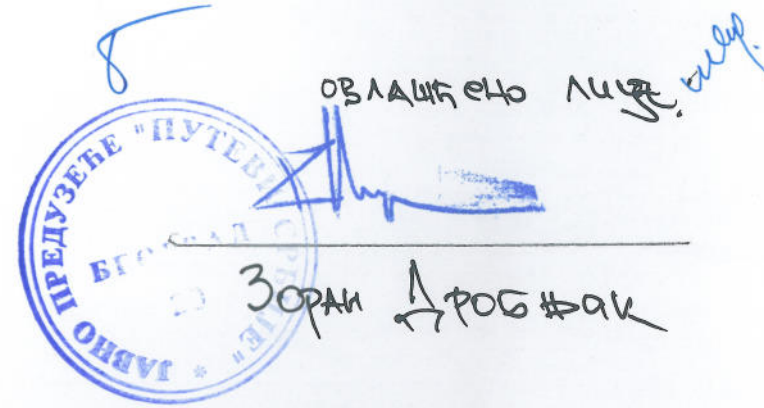 овлашћено лице
ЈАВНО ПРЕДУЗЕЋЕ "ПУТЕВИ СРБИЈЕ" *
БЕОГРАД
Зоран Дробњак